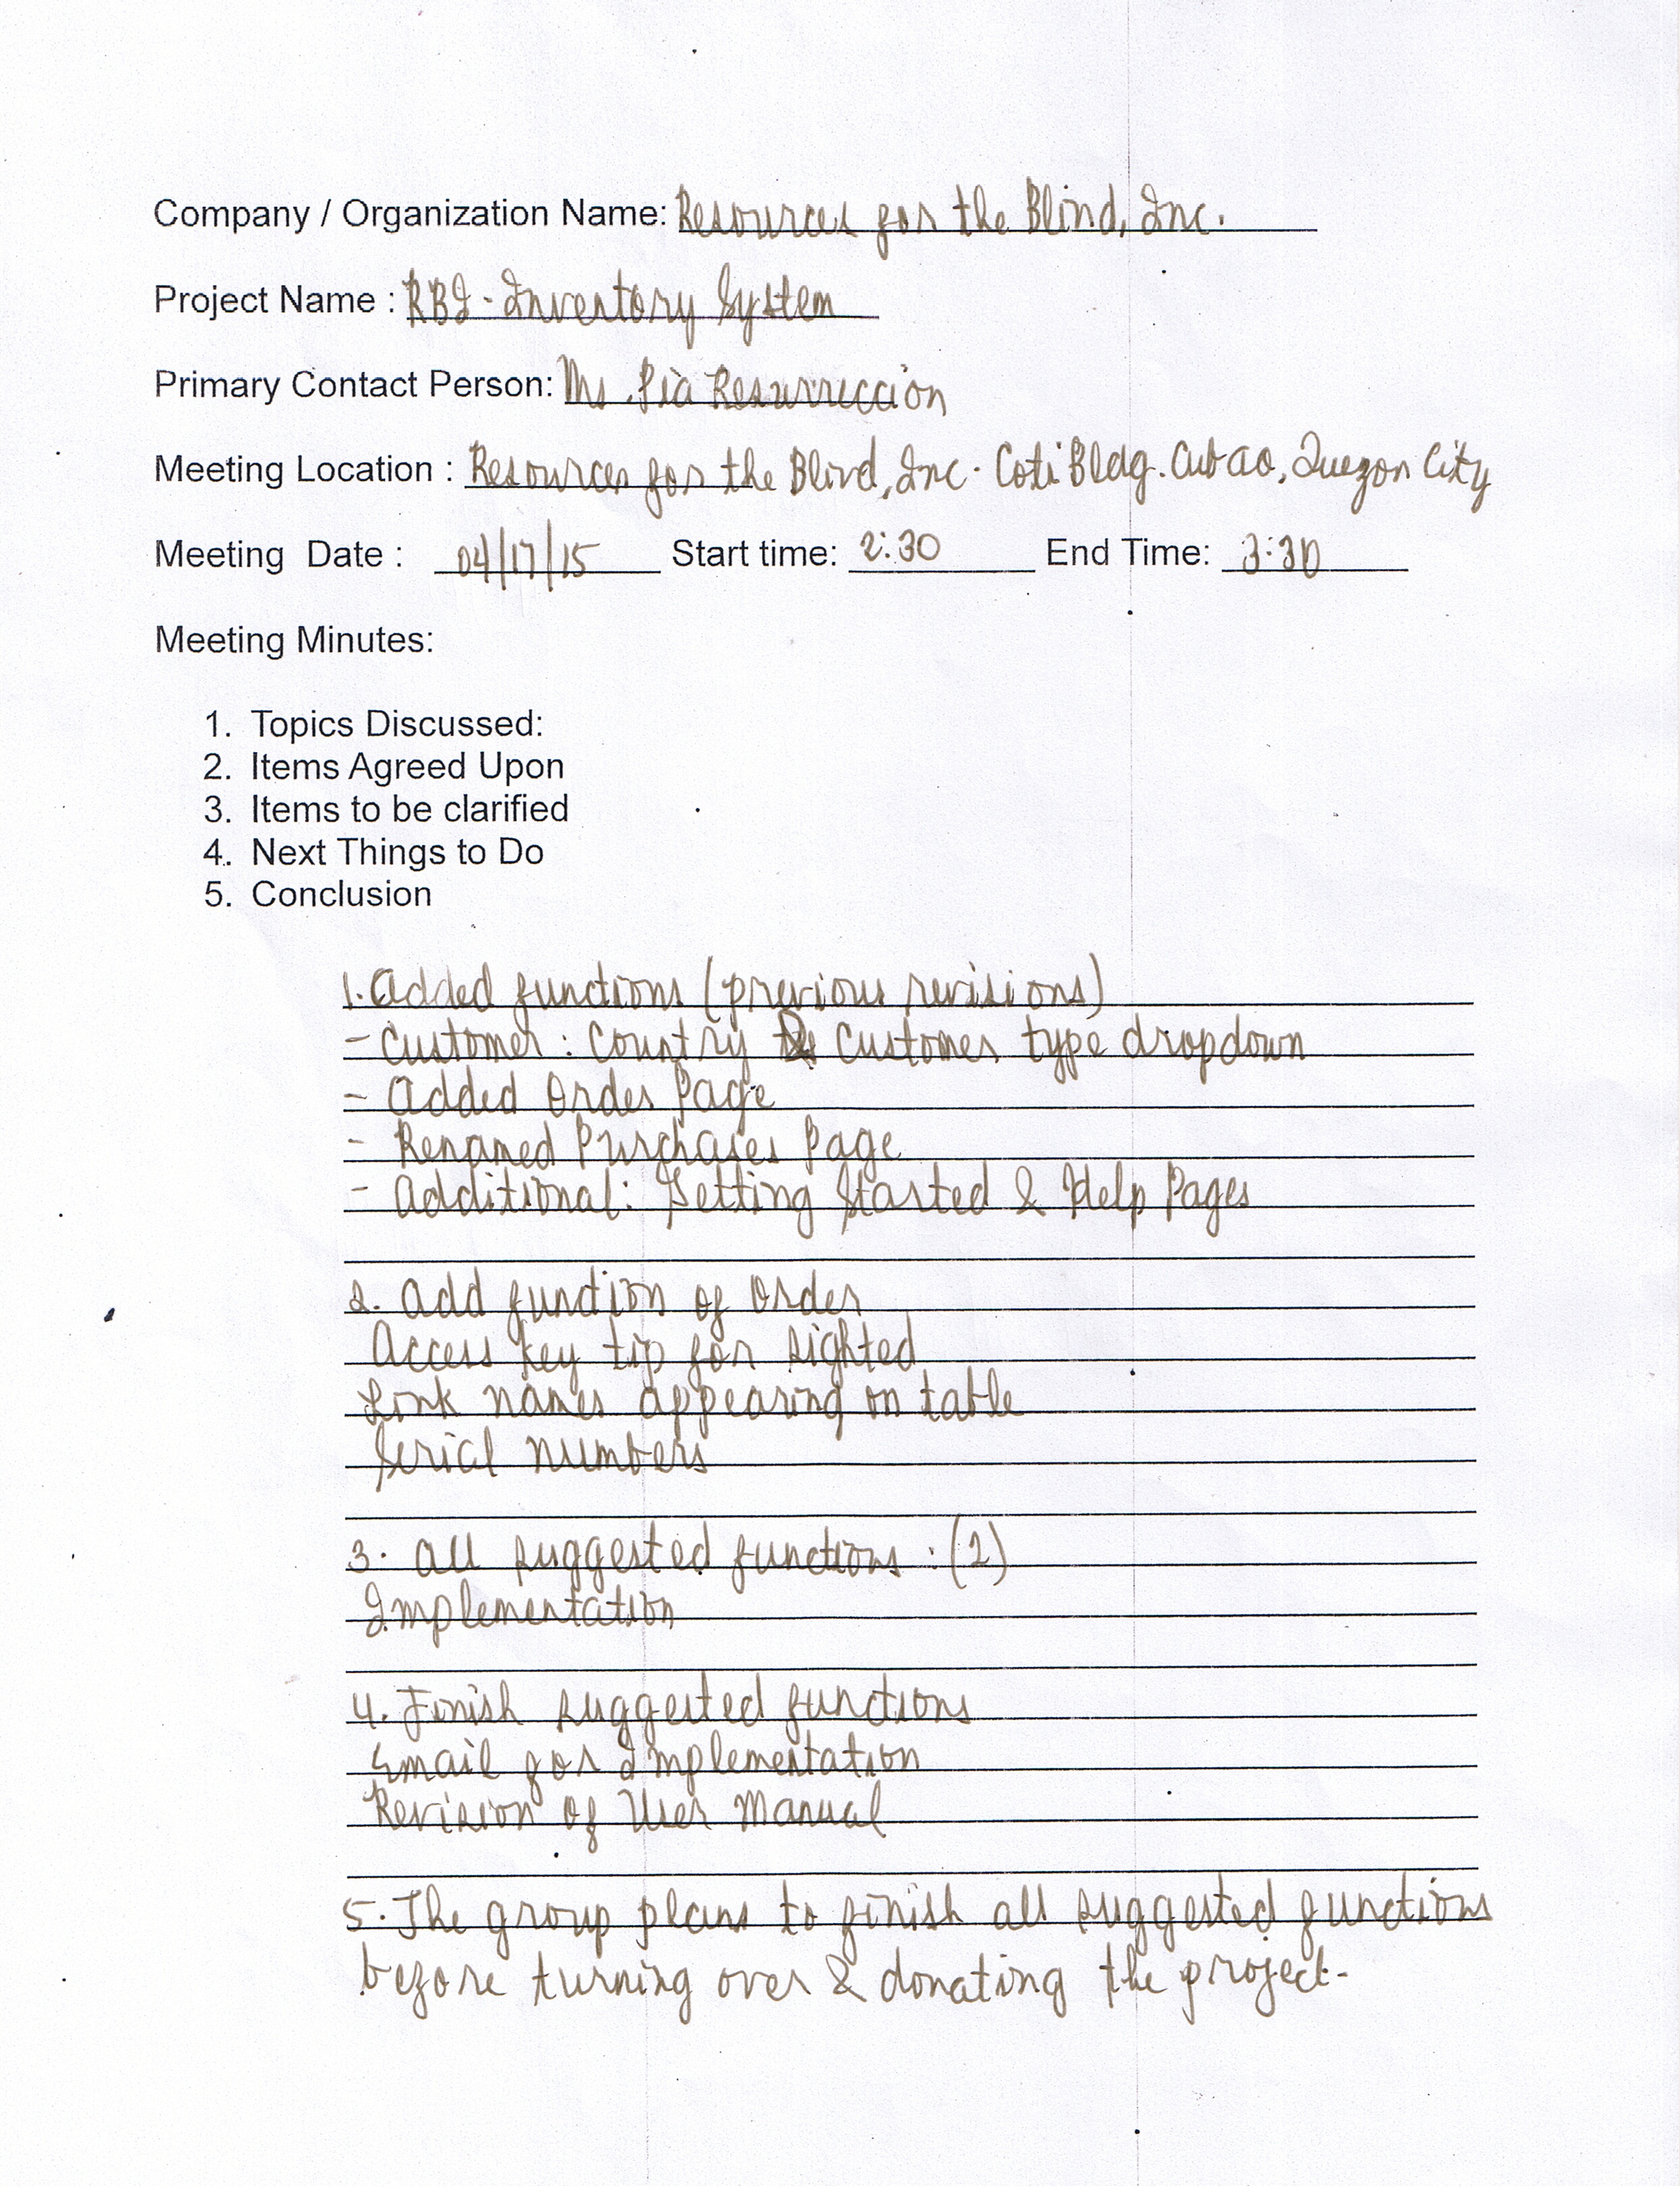 Company / Organization Name: Resources for the Blind, Inc.
Project Name : RBI - Inventory System
Primary Contact Person: Ms. Pia Resurreccion
Meeting Location : Resources for the Blind, Inc. Coti Bldg. Cubao, Quezon City
Meeting Date : 04/17/15 Start time: 2:30 End Time: 3:30
Meeting Minutes:
1. Topics Discussed:
2. Items Agreed Upon
3. Items to be clarified
4. Next Things to Do
5. Conclusion
1. Added functions (previous revisions)
- Customer : Country & Customer type dropdown
- Added Order Page
- Renamed Purchases Page
- Additional: Getting Started & Help Pages
2. Add function of Order
Access key tip for sighted
Link names appearing on table
Serial numbers
3. All suggested functions : (2)
Implementation
4. Finish suggested functions
Email for Implementation
Revision of User Manual
5. The group plans to finish all suggested functions
before turning over & donating the project.